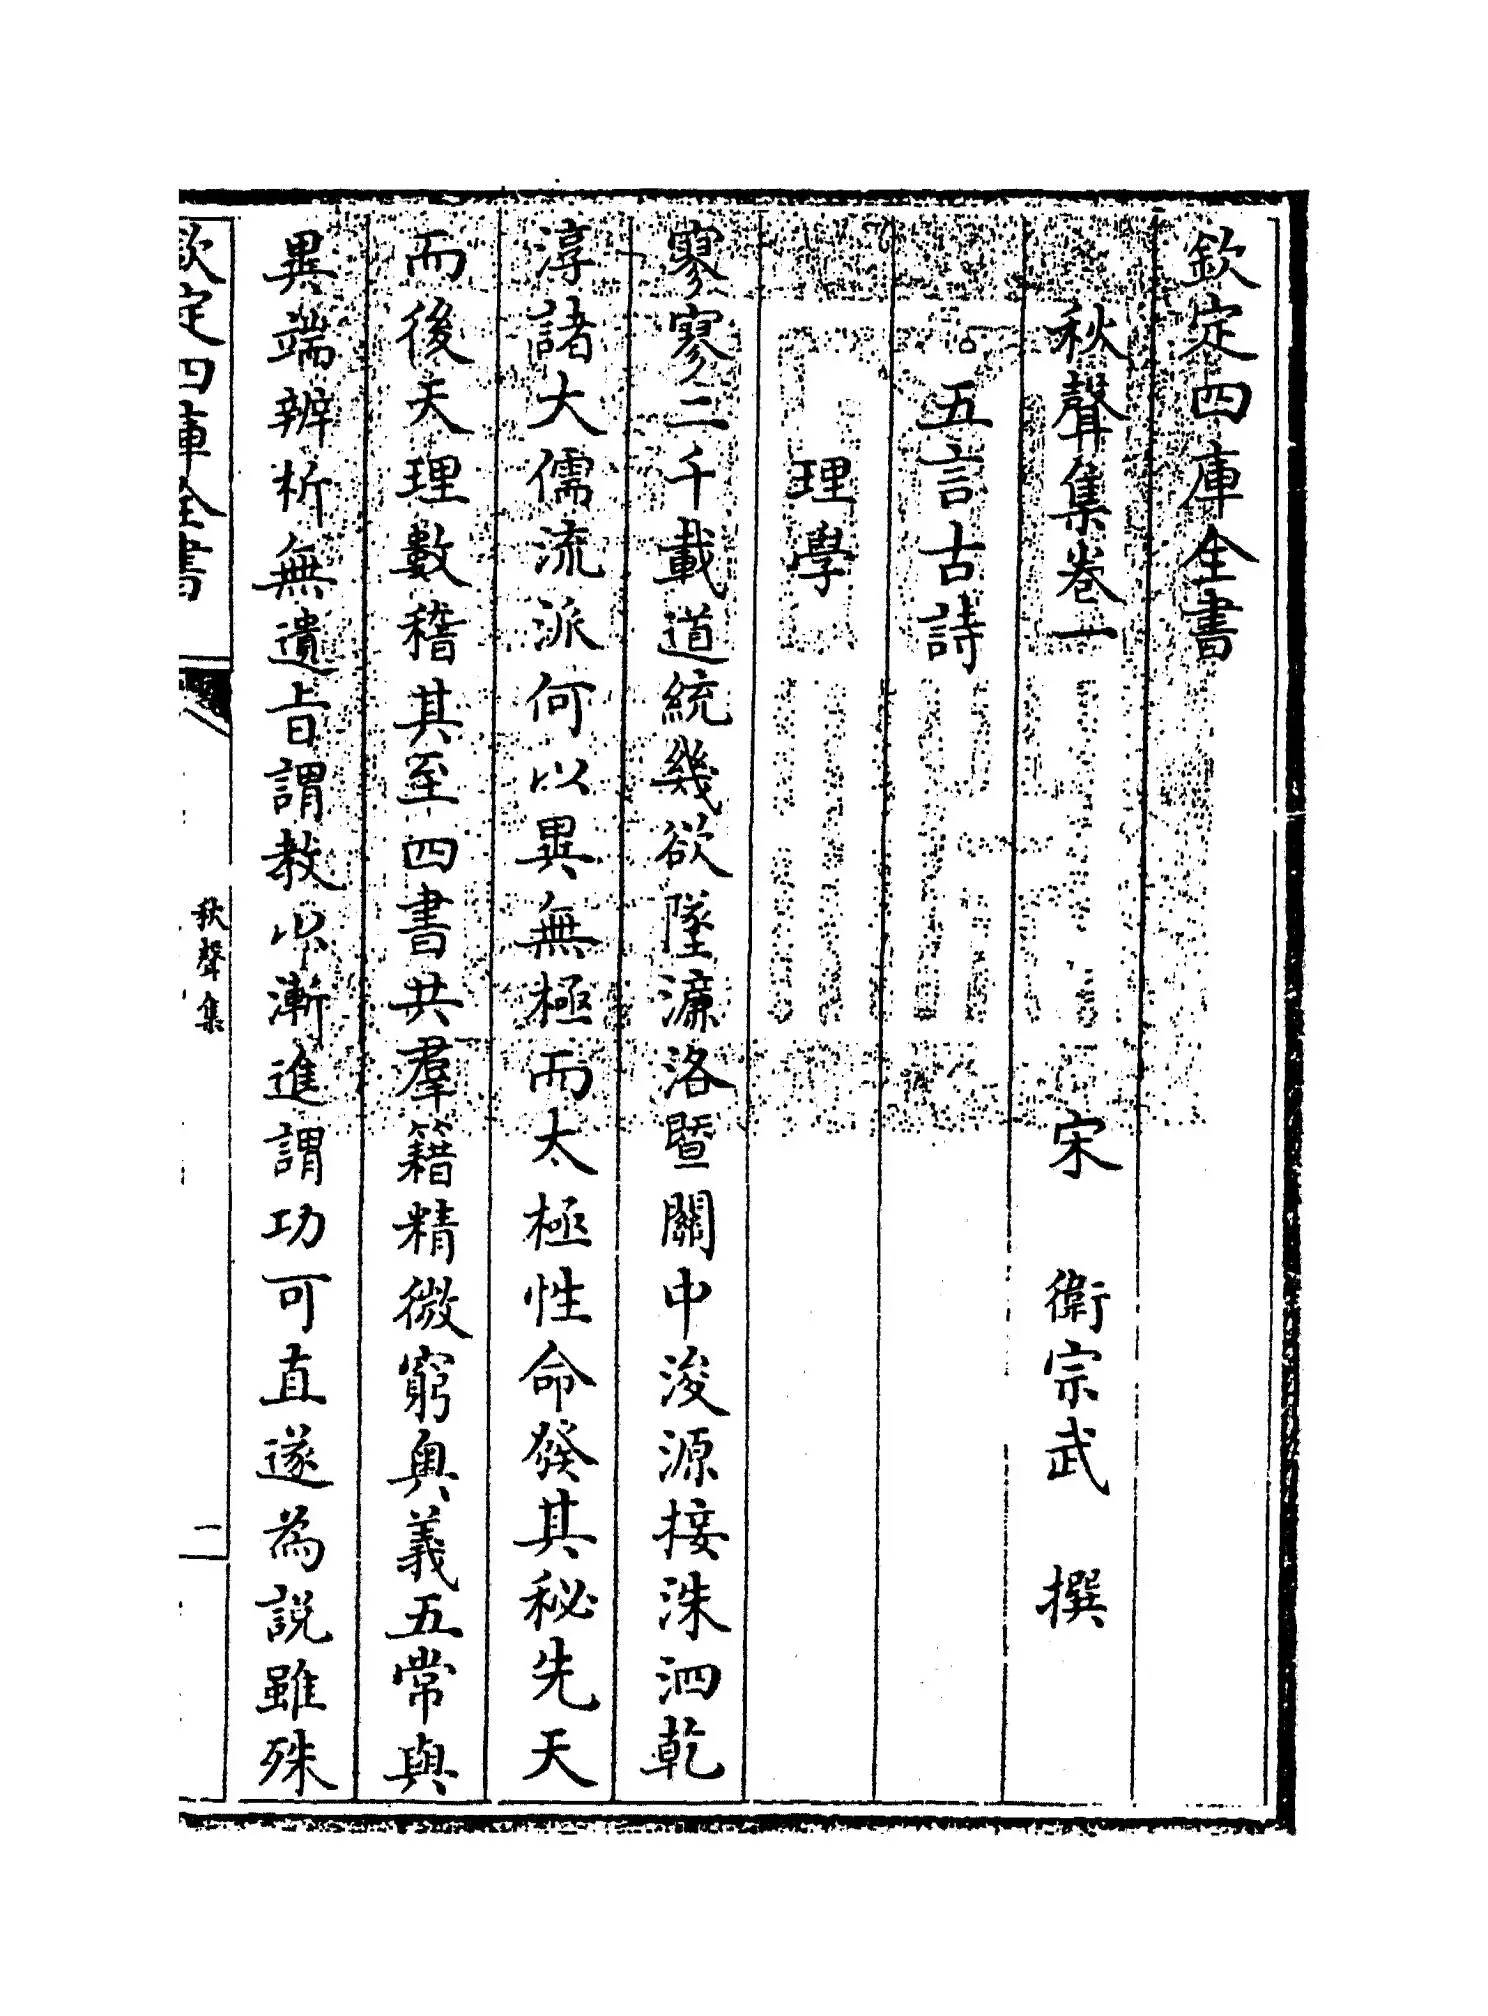 欽定四庫全書
秋聲集卷一
宋 衛宗武 撰
五言古詩
理學
寥寥二千載道統幾欲墜濂洛暨關中浚源接洙泗乾
淳諸大儒流派何以異無極而太極性命發其秘先天
而後天理數稽其至四書共羣籍精微窮奥義五常與
異端辨析無遺旨謂教以漸進謂功可直遂為說雖殊
欽定四庫全書
秋聲集
二